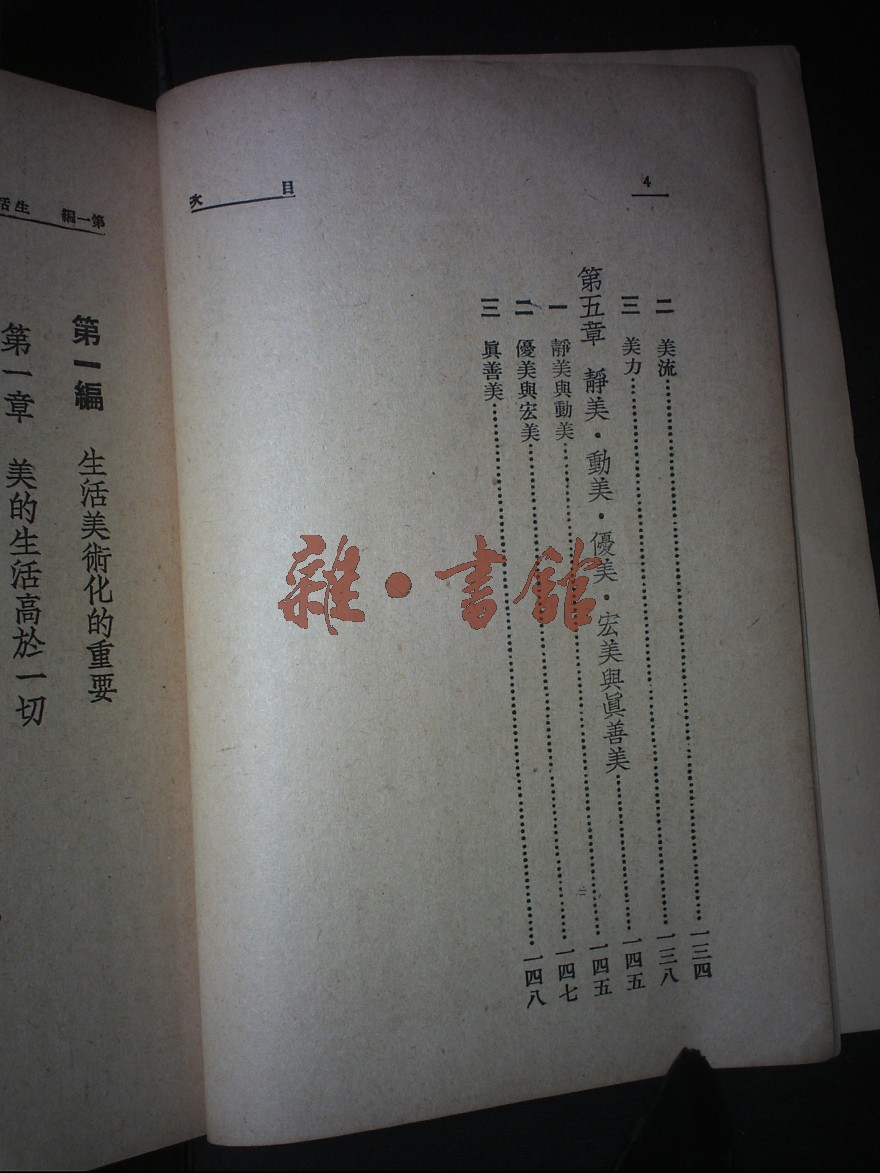 4
目次
二 美流……一三四
三 美力……一三八
第五章 靜美・動美・優美・宏美與眞善美……一四五
一 靜美與動美……一四五
二 優美與宏美……一四七
三 眞善美……一四八
雜・書館
第一編 生活
第一編 生活美術化的重要
第一章 美的生活高於一切